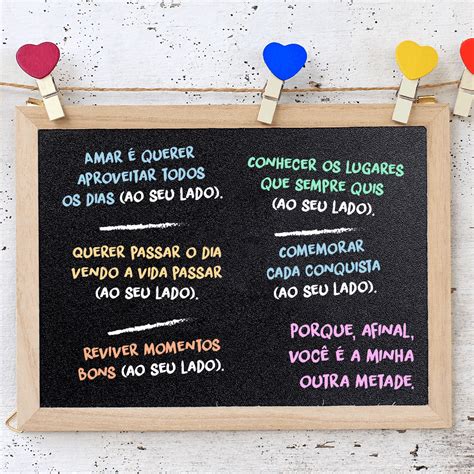 AMAR É QUERER
APROVEITAR TODOS
OS DIAS (AO SEU LADO).
QUERER PASSAR O DIA
VENDO A VIDA PASSAR
(AO SEU LADO).
REVIVER MOMENTOS
BONS (AO SEU LADO).
CONHECER OS LUGARES
QUE SEMPRE QUIS
(AO SEU LADO).
COMEMORAR
CADA CONQUISTA
(AO SEU LADO).
PORQUE, AFINAL,
VOCÊ É A MINHA
OUTRA METADE.